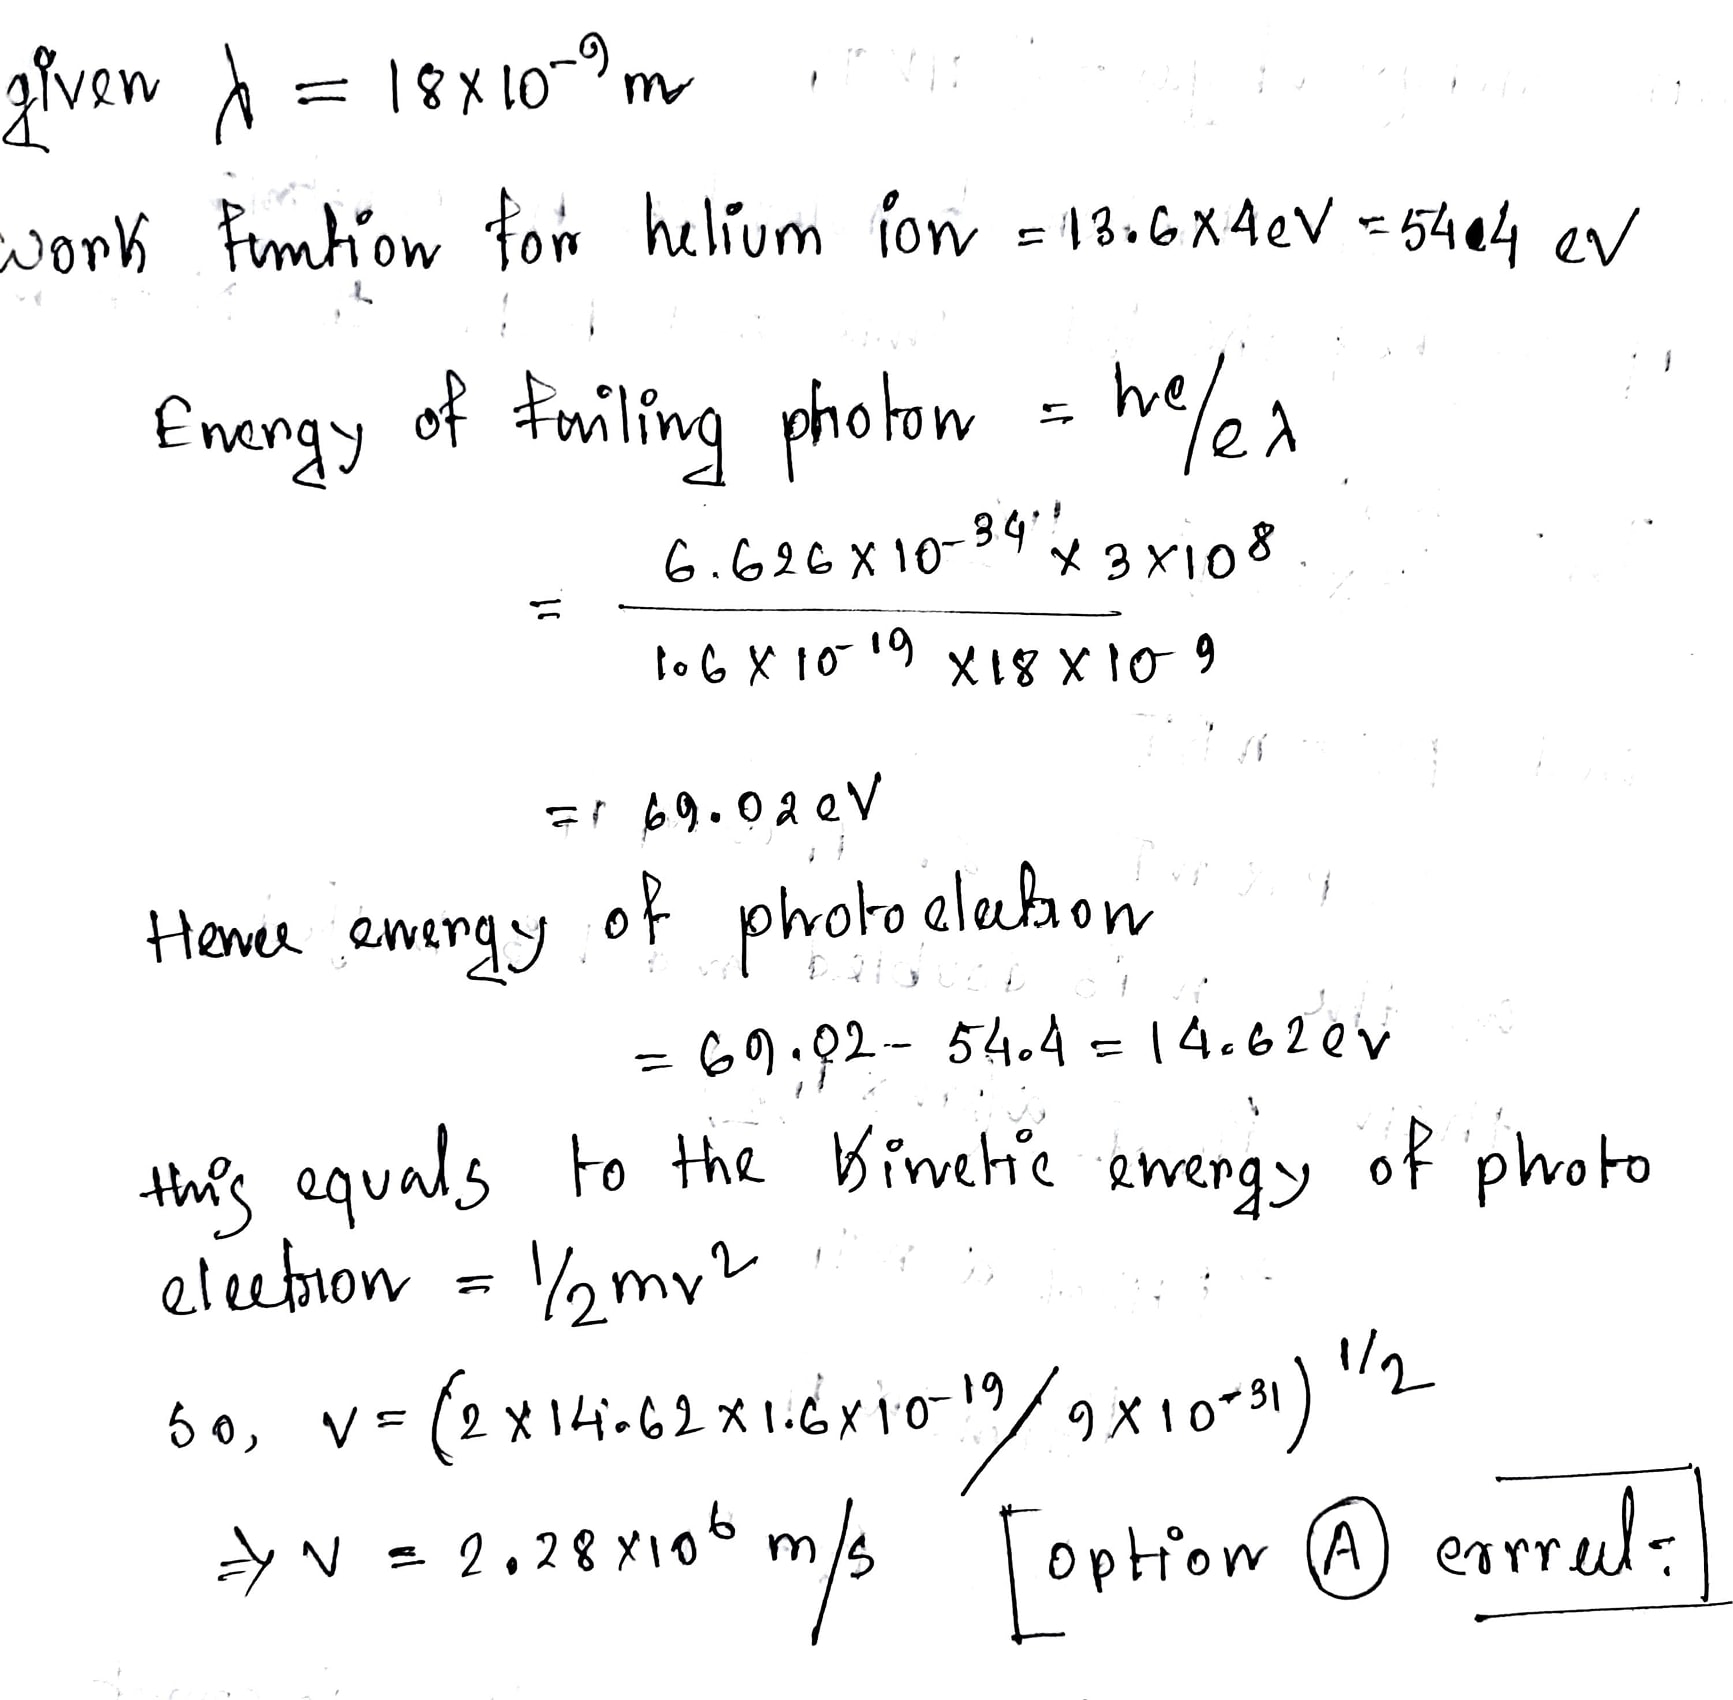 given λ = 18×10⁻⁹ m
work funtion for helium ion = 13.6×4eV = 54.4 eV
Energy of failing photon = hc/eλ
= 6.626×10⁻³⁴ × 3×10⁸
1.6×10⁻¹⁹ ×18×10⁻⁹
= 69.02eV
Hence energy of photoelectron
= 69.02 - 54.4 = 14.62ev
this equals to the Kinetic energy of photo
electron = 1/2mv²
So, v = (2×14.62×1.6×10⁻¹⁹/9×10⁻³¹)^1/2
⇒ v = 2.28×10⁶ m/s [option Ⓐ correct]